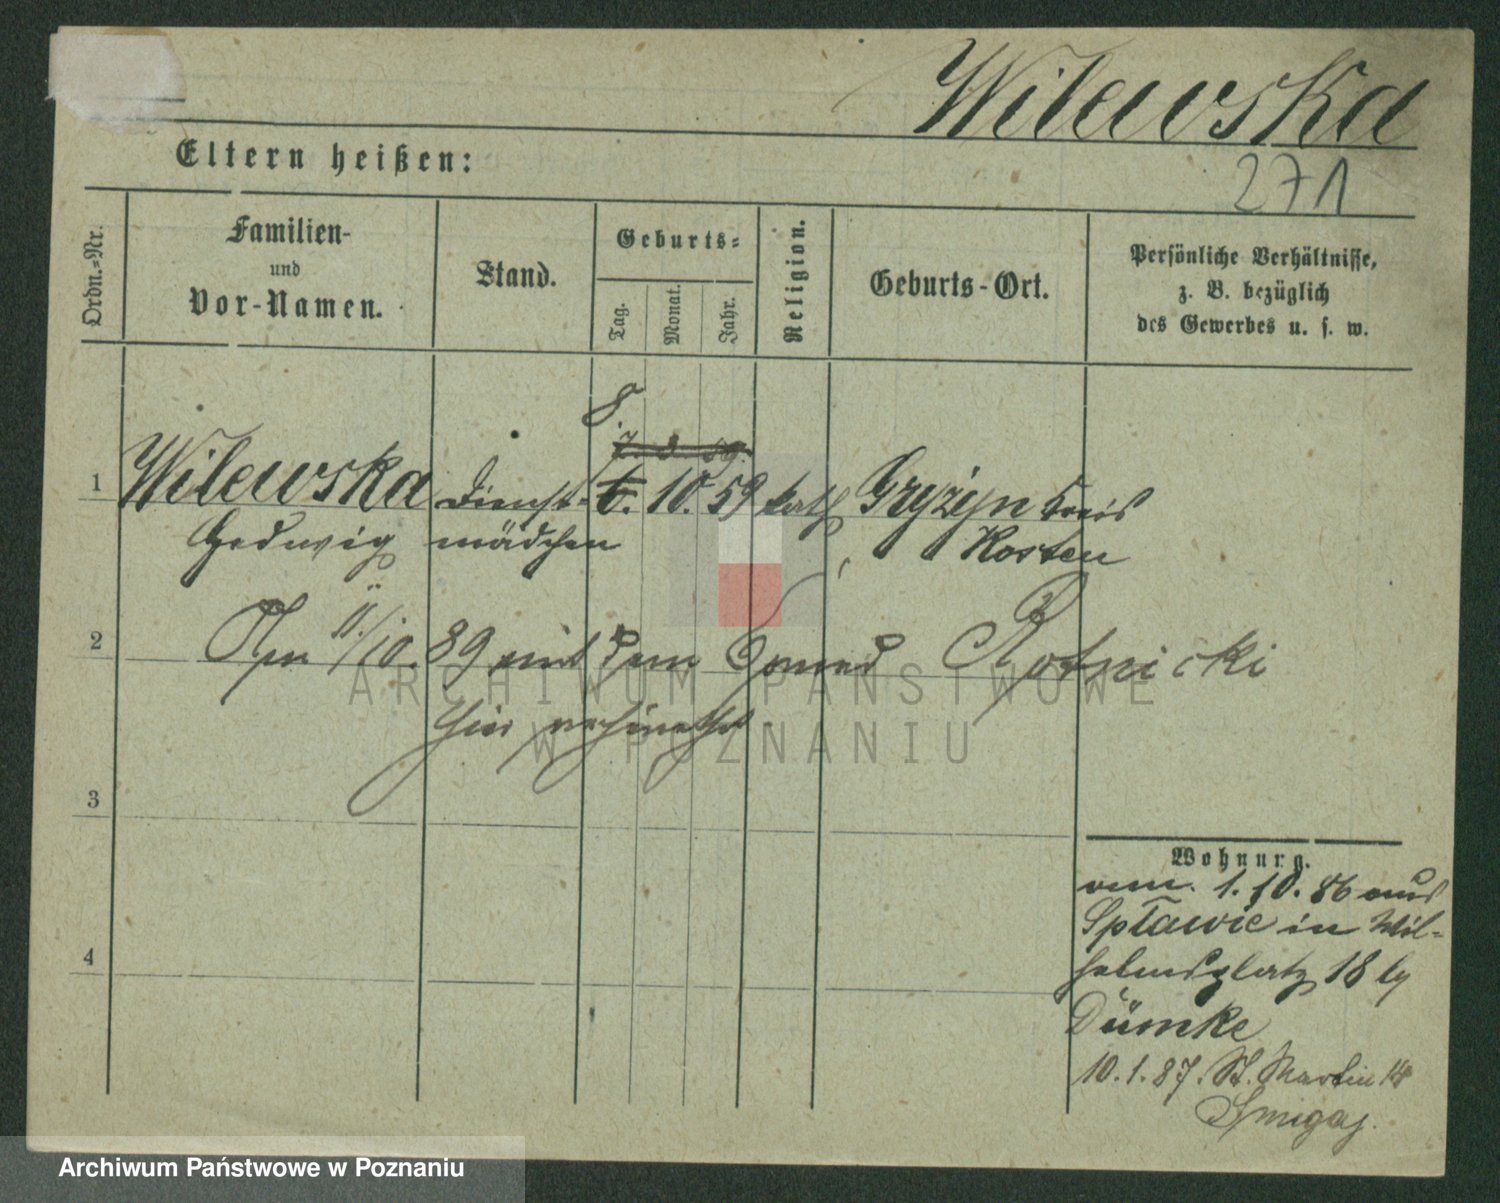 Wilewska
271
Eltern heißen:
Ordn.-Nr.
Familien-
und
Vor-Namen.
Stand.
Geburts-
Tag.
Monat.
Jahr.
Religion.
Geburts-Ort.
Persönliche Verhältnisse,
z. B. bezüglich
des Gewerbes u. s. w.
8
7. 9. 59.
1 Wilewska Dienst- 6. 10. 59 kath Gryżyn Kreis
Hedwig mädchen Kosten
2 Am 11/10. 89 mit dem Rotnicki
hier verheirathet
3
4
Wohnung.
1. 10. 86 aus
Spławie in Wil-
helmsplatz 18 by
Dümke
10. 1. 87. St. Martin 14
Smigaj.
ARCHIWUM PAŃSTWOWE
W POZNANIU
Archiwum Państwowe w Poznaniu